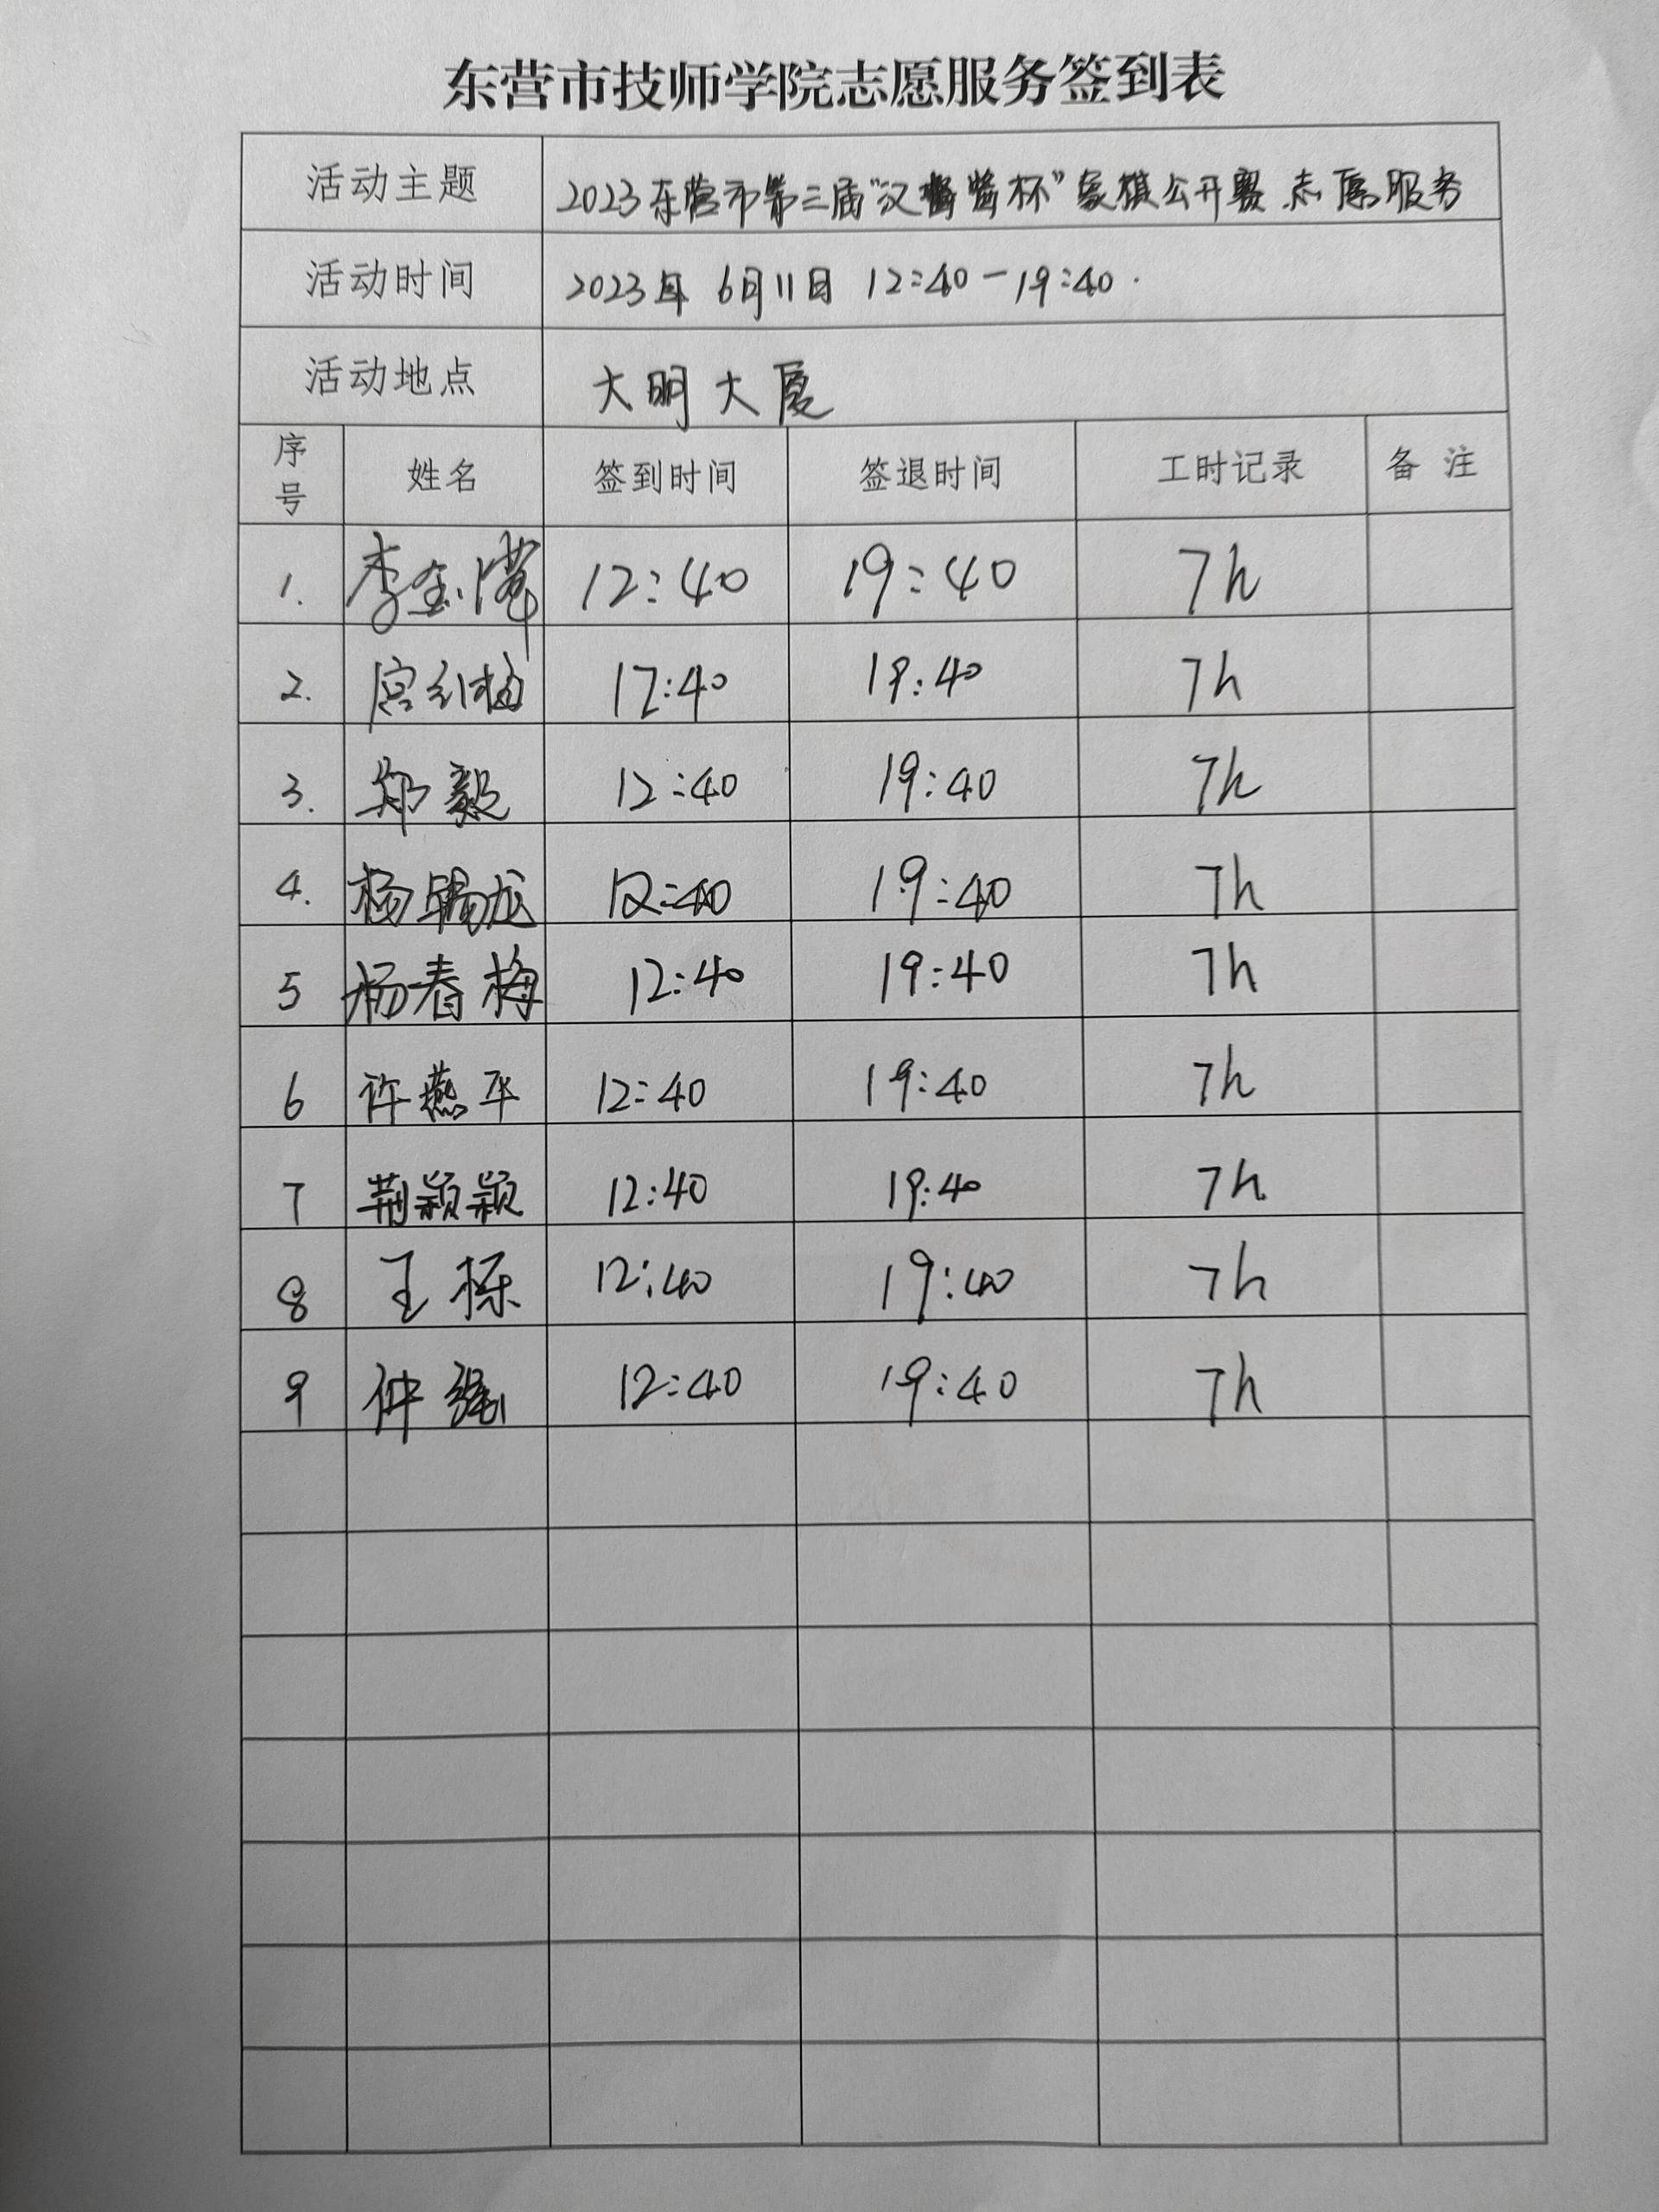 东营市技师学院志愿服务签到表
活动主题 2023东营市第三届“汉酱酱杯”象棋公开赛志愿服务
活动时间 2023年 6月11日 12:40-19:40
活动地点 大明大厦
序号 姓名 签到时间 签退时间 工时记录 备 注
1. 李 12:40 19:40 7h
2. 宫红梅 12:40 19:40 7h
3. 郑毅 12:40 19:40 7h
4. 杨锡龙 12:40 19:40 7h
5 杨春梅 12:40 19:40 7h
6 许燕平 12:40 19:40 7h
7 荆颖颖 12:40 19:40 7h
8 王栋 12:40 19:40 7h
9 仲强 12:40 19:40 7h